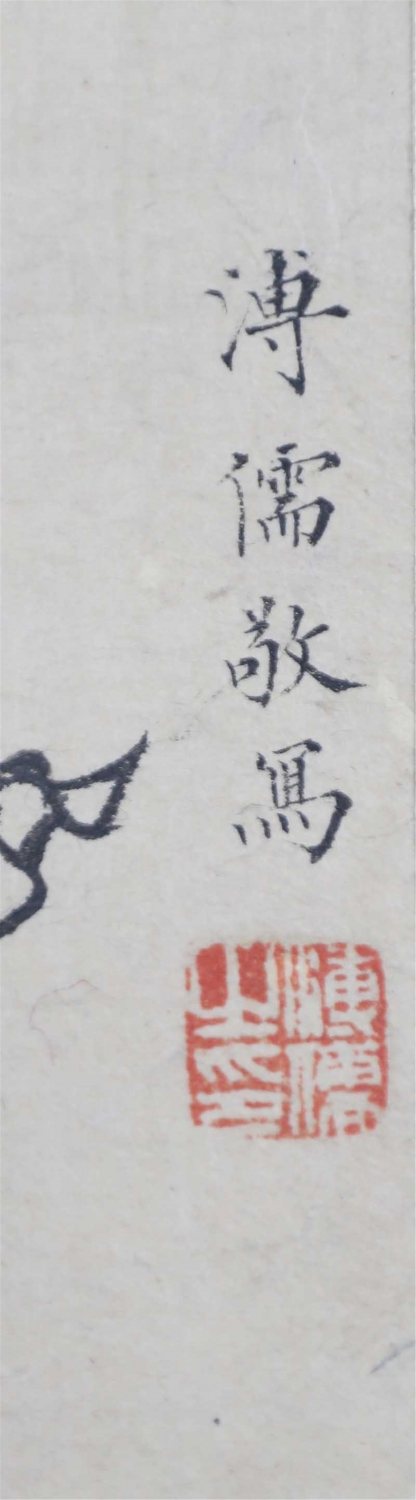 溥儒敬寫
溥儒
之印